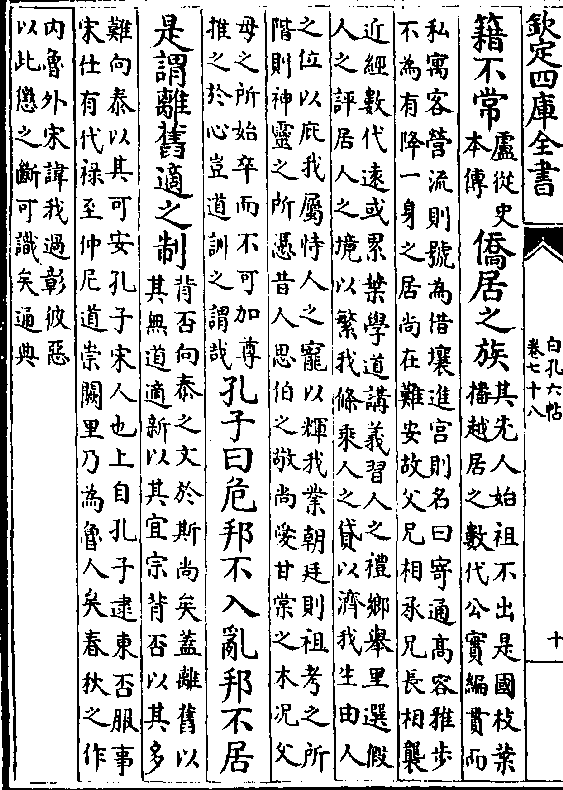 欽定四庫全書
白孔六帖
卷七十八
十
籍不常
盧從史
本傳
僑居之族
其先人始祖不出是國枝葉
播越居之數代公實編貫而
私寓客營流則號為借壤進宫則名曰寄通高容雅步
不為有降一身之居尚在難安故父兄相承兄長相襲
近經數代遠或累葉學道講義習人之禮鄉舉里選假
人之評居人之境以繁我條乘人之貸以濟我生由人
之位以庇我屬恃人之寵以輝我業朝廷則祖考之所
階則神靈之所慿昔人思伯之敬尚愛甘棠之本况父
母之所始卒而不可加尊
推之於心豈道訓之謂哉
孔子曰危邦不入亂邦不居
是謂離舊適之制
背否向泰之文於斯尚矣蓋離舊以
其無道適新以其宜宗背否以其多
難向泰以其可安孔子宋人也上自孔子逮東否服事
宋仕有代禄至仲尼道崇闕里乃為魯人矣春秋之作
内魯外宋諱我過彰彼惡
以此懲之斷可識矣通典